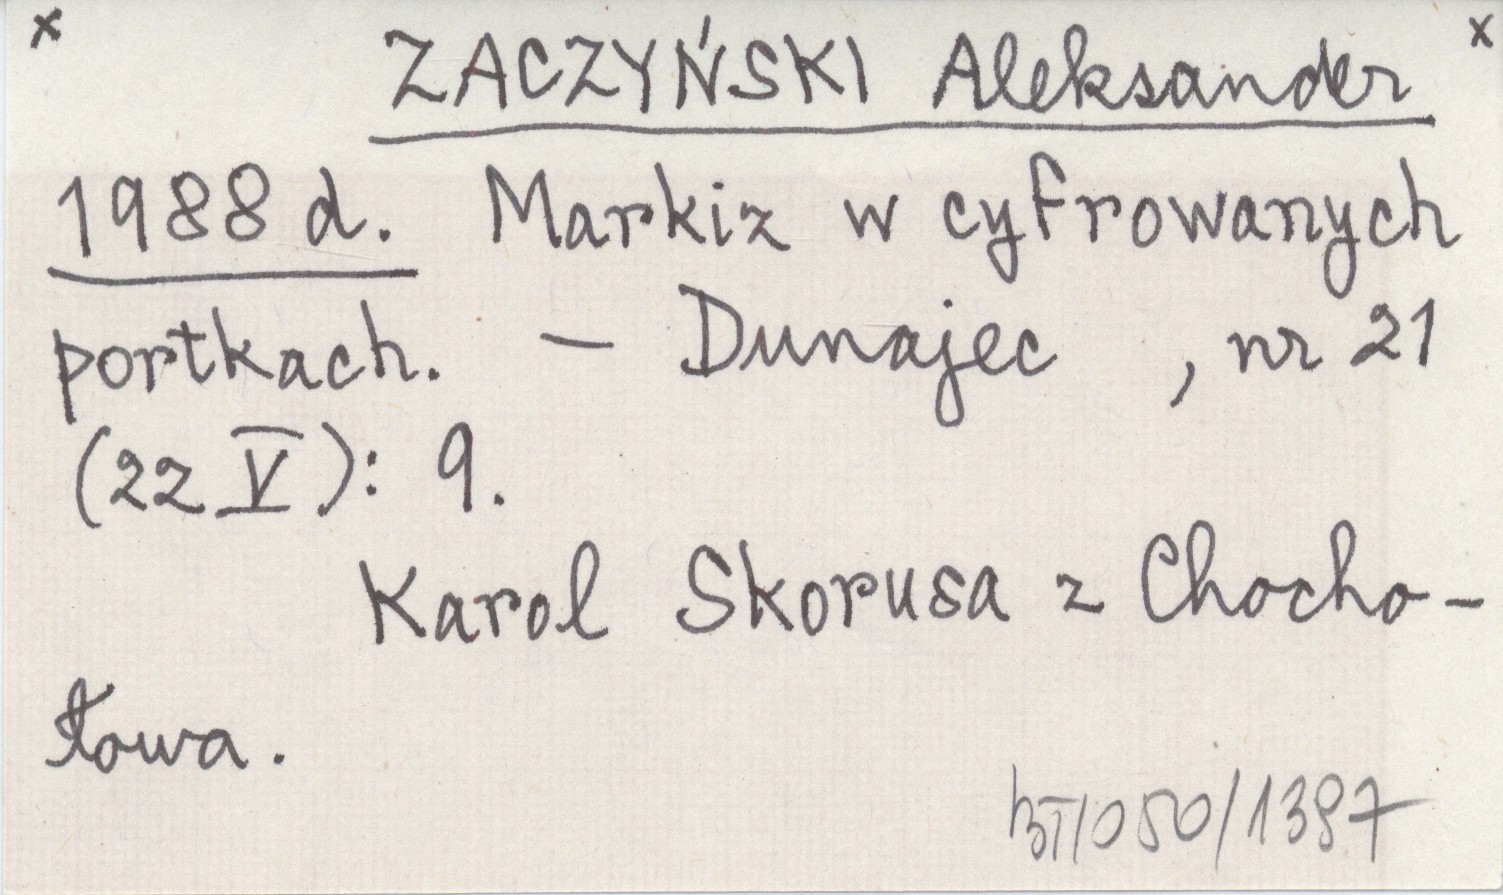 x ZACZYŃSKI Aleksander x
1988 d. Markiz w cyfrowanych
portkach. – Dunajec , nr 21
(22 V): 9.
Karol Skorusa z Chocho-
łowa.
BT/050/1387